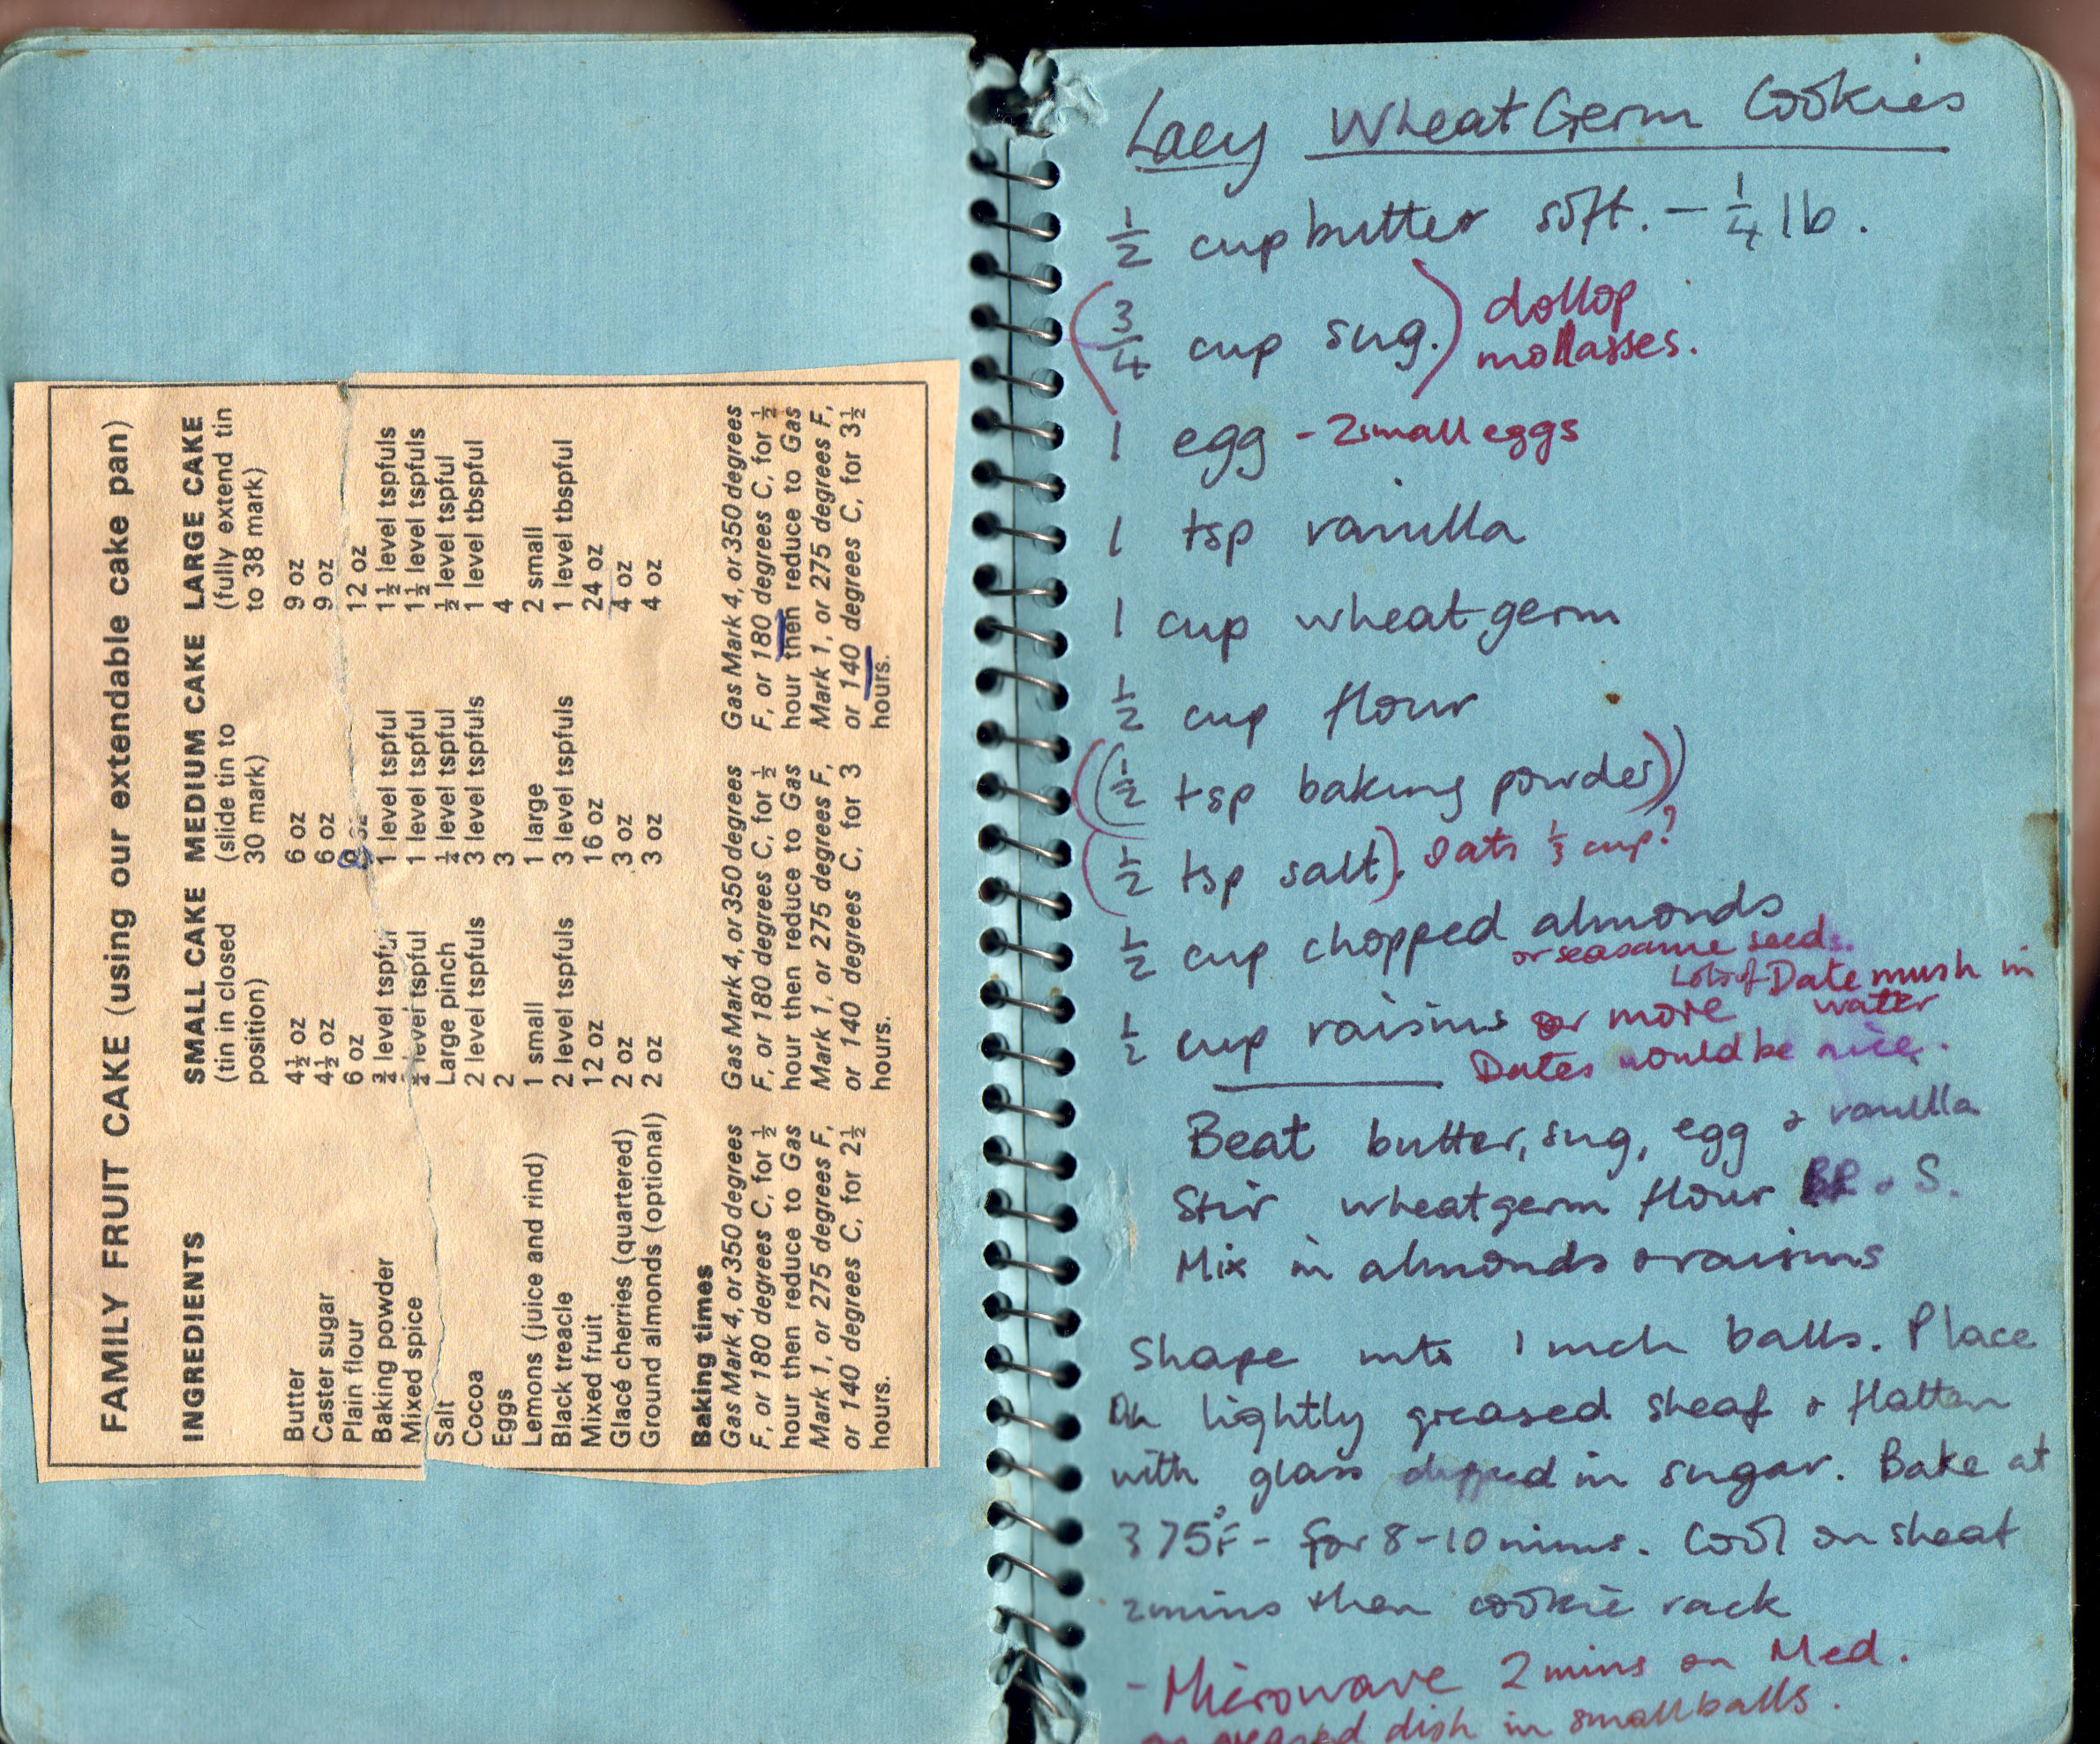 FAMILY FRUIT CAKE (using our extendable cake pan)
INGREDIENTS SMALL CAKE MEDIUM CAKE LARGE CAKE
(tin in closed (slide tin to (fully extend tin
position) 30 mark) to 38 mark)
Butter 4½ oz 6 oz 9 oz
Caster sugar 4½ oz 6 oz 9 oz
Plain flour 6 oz 12 oz
Baking powder ¾ level tspful 1 level tspful 1½ level tspfuls
Mixed spice level tspful 1 level tspful 1½ level tspfuls
Salt Large pinch level tspful ½ level tspful
Cocoa 2 level tspfuls 3 level tspfuls 1 level tbspful
Eggs 2 3 4
Lemons (juice and rind) 1 small 1 large 2 small
Black treacle 2 level tspfuls 3 level tspfuls 1 level tbspful
Mixed fruit 12 oz 16 oz 24 oz
Glacé cherries (quartered) 2 oz 3 oz 4 oz
Ground almonds (optional) 2 oz 3 oz 4 oz
Baking times
Gas Mark 4, or 350 degrees Gas Mark 4, or 350 degrees Gas Mark 4, or 350 degrees Gas Mark 4, or 350 degrees
F, or 180 degrees C, for ½ F, or 180 degrees C, for ½ F, or 180 degrees C, for ½ F, or 180 degrees C, for ½
hour then reduce to Gas hour then reduce to Gas hour then reduce to Gas
Mark 1, or 275 degrees F, Mark 1, or 275 degrees F, Mark 1, or 275 degrees F,
or 140 degrees C, for 2½ or 140 degrees C, for 3 or 140 degrees C, for 3½
hours. hours. hours.
Lacy Wheat Germ Cookies
½ cup butter soft. – ¼ lb.
(¾ cup sug.) dollop
mollasses.
1 egg - 2 small eggs
1 tsp vanilla
1 cup wheatgerm
½ cup flour
((½ tsp baking powder))
(½ tsp salt). Oats ⅓ cup?
½ cup chopped almonds
or seasame seeds.
Lots of Date mush in
water
½ cup raisins or more
Dates would be nice.
Beat butter, sug, egg & vanilla
Stir wheatgerm flour BP & S.
Mix in almonds & raisins
Shape into 1 inch balls. Place
On lightly greased sheaf & flatten
with glass dipped in sugar. Bake at
375°F - for 8-10 mins. Cool on sheat
2 mins then cookie rack
- Microwave 2 mins on Med.
on greased dish in small balls.